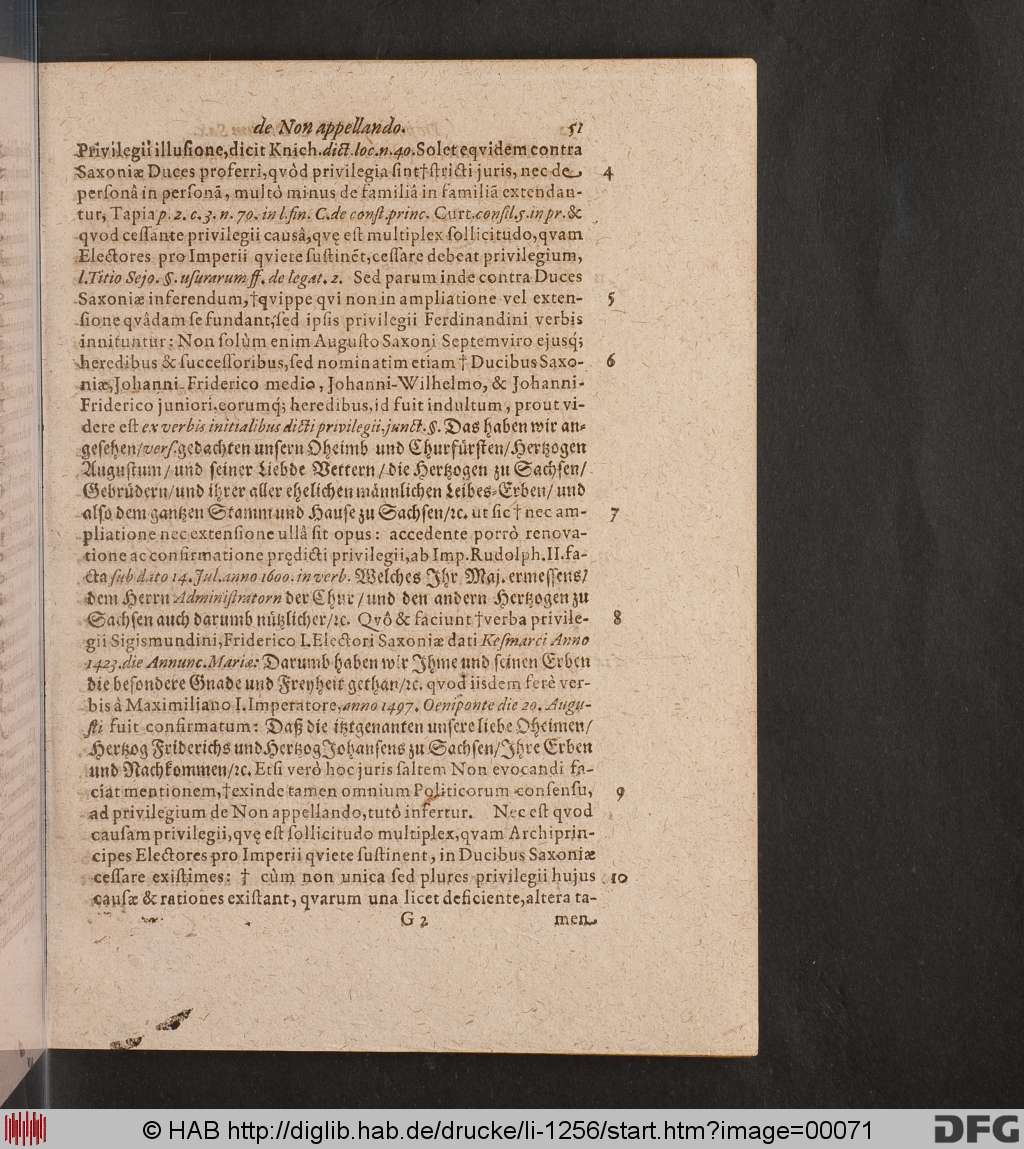 de Non appellando. 51
Privilegii illusione, dicit Knich. dict. loc. n. 40. Solet eqvidem contra
Saxoniæ Duces proferri, qvòd privilegia sint † stricti juris, nec de 4
personâ in personã, multò minus de familiâ in familiã extendan-
tur, Tapia p. 2. c. 3. n. 70. in l. fin. C. de const. princ. Curt. consil. 5. in pr. &
qvod cessante privilegii causâ, qvę est multiplex sollicitudo, qvam
Electores pro Imperii qviete sustinẽt, cessare debeat privilegium,
l. Titio Sejo. §. usurarum ff. de legat. 2. Sed parum inde contra Duces
Saxoniæ inferendum, † qvippe qvi non in ampliatione vel exten- 5
sione qvâdam se fundant, sed ipsis privilegii Ferdinandini verbis
innituntur: Non solùm enim Augusto Saxoni Septemviro ejusq́;
heredibus & successoribus, sed nominatim etiam † Ducibus Saxo- 6
niæ, Johanni-Friderico medio, Johanni-Wilhelmo, & Johanni-
Friderico juniori, eorumq́; heredibus, id fuit indultum, prout vi-
dere est ex verbis initialibus dicti privilegii. junct. §. Das haben wir an-
gesehen/ vers. gedachten unsern Oheimb und Churfürsten/ Hertzogen
Augustum/ und seiner Liebde Vettern/ die Hertzogen zu Sachsen/
Gebrüdern/ und ihrer aller ehelichen männlichen Leibes-Erben/ und
also dem gantzen Stamm und Hause zu Sachsen/ ꝛc. ut sic † nec am- 7
pliatione nec extensione ullâ sit opus: accedente porrò renova-
tione ac confirmatione prędicti privilegii, ab Imp. Rudolph. II. fa-
cta sub dato 14. Jul. anno 1600. in verb. Welches Ihr Maj. ermessens/
dem Herrn Administratorn der Chur/ und den andern Hertzogen zu
Sachsen auch darumb nützlicher/ ꝛc. Qvô & faciunt † verba privile- 8
gii Sigismundini, Friderico I. Electori Saxoniæ dati Kesmarci Anno
1423. die Annunc. Mariæ: Darumb haben wir Ihme und seinen Erben
die besondere Gnade und Freyheit gethan/ ꝛc. qvod iisdem ferè ver-
bis à Maximiliano I. Imperatore, anno 1497. Oeniponte die 20. Augu-
sti fuit confirmatum: Daß die itztgenanten unsere liebe Oheimen/
Hertzog Friderichs und Hertzog Johansens zu Sachsen/ Ihre Erben
und Nachkommen/ ꝛc. Etsi verò hoc juris saltem Non evocandi fa-
ciat mentionem, † exinde tamen omnium Politicorum consensu, 9
ad privilegium de Non appellando, tutò infertur. Nec est qvod
causam privilegii, qvę est sollicitudo multiplex, qvam Archiprin-
cipes Electores pro Imperii qviete sustinent, in Ducibus Saxoniæ
cessare existimes: † cùm non unica sed plures privilegii hujus 10
causæ & rationes existant, qvarum una licet deficiente, altera ta-
G 2 men
© HAB http://diglib.hab.de/drucke/li-1256/start.htm?image=00071 DFG